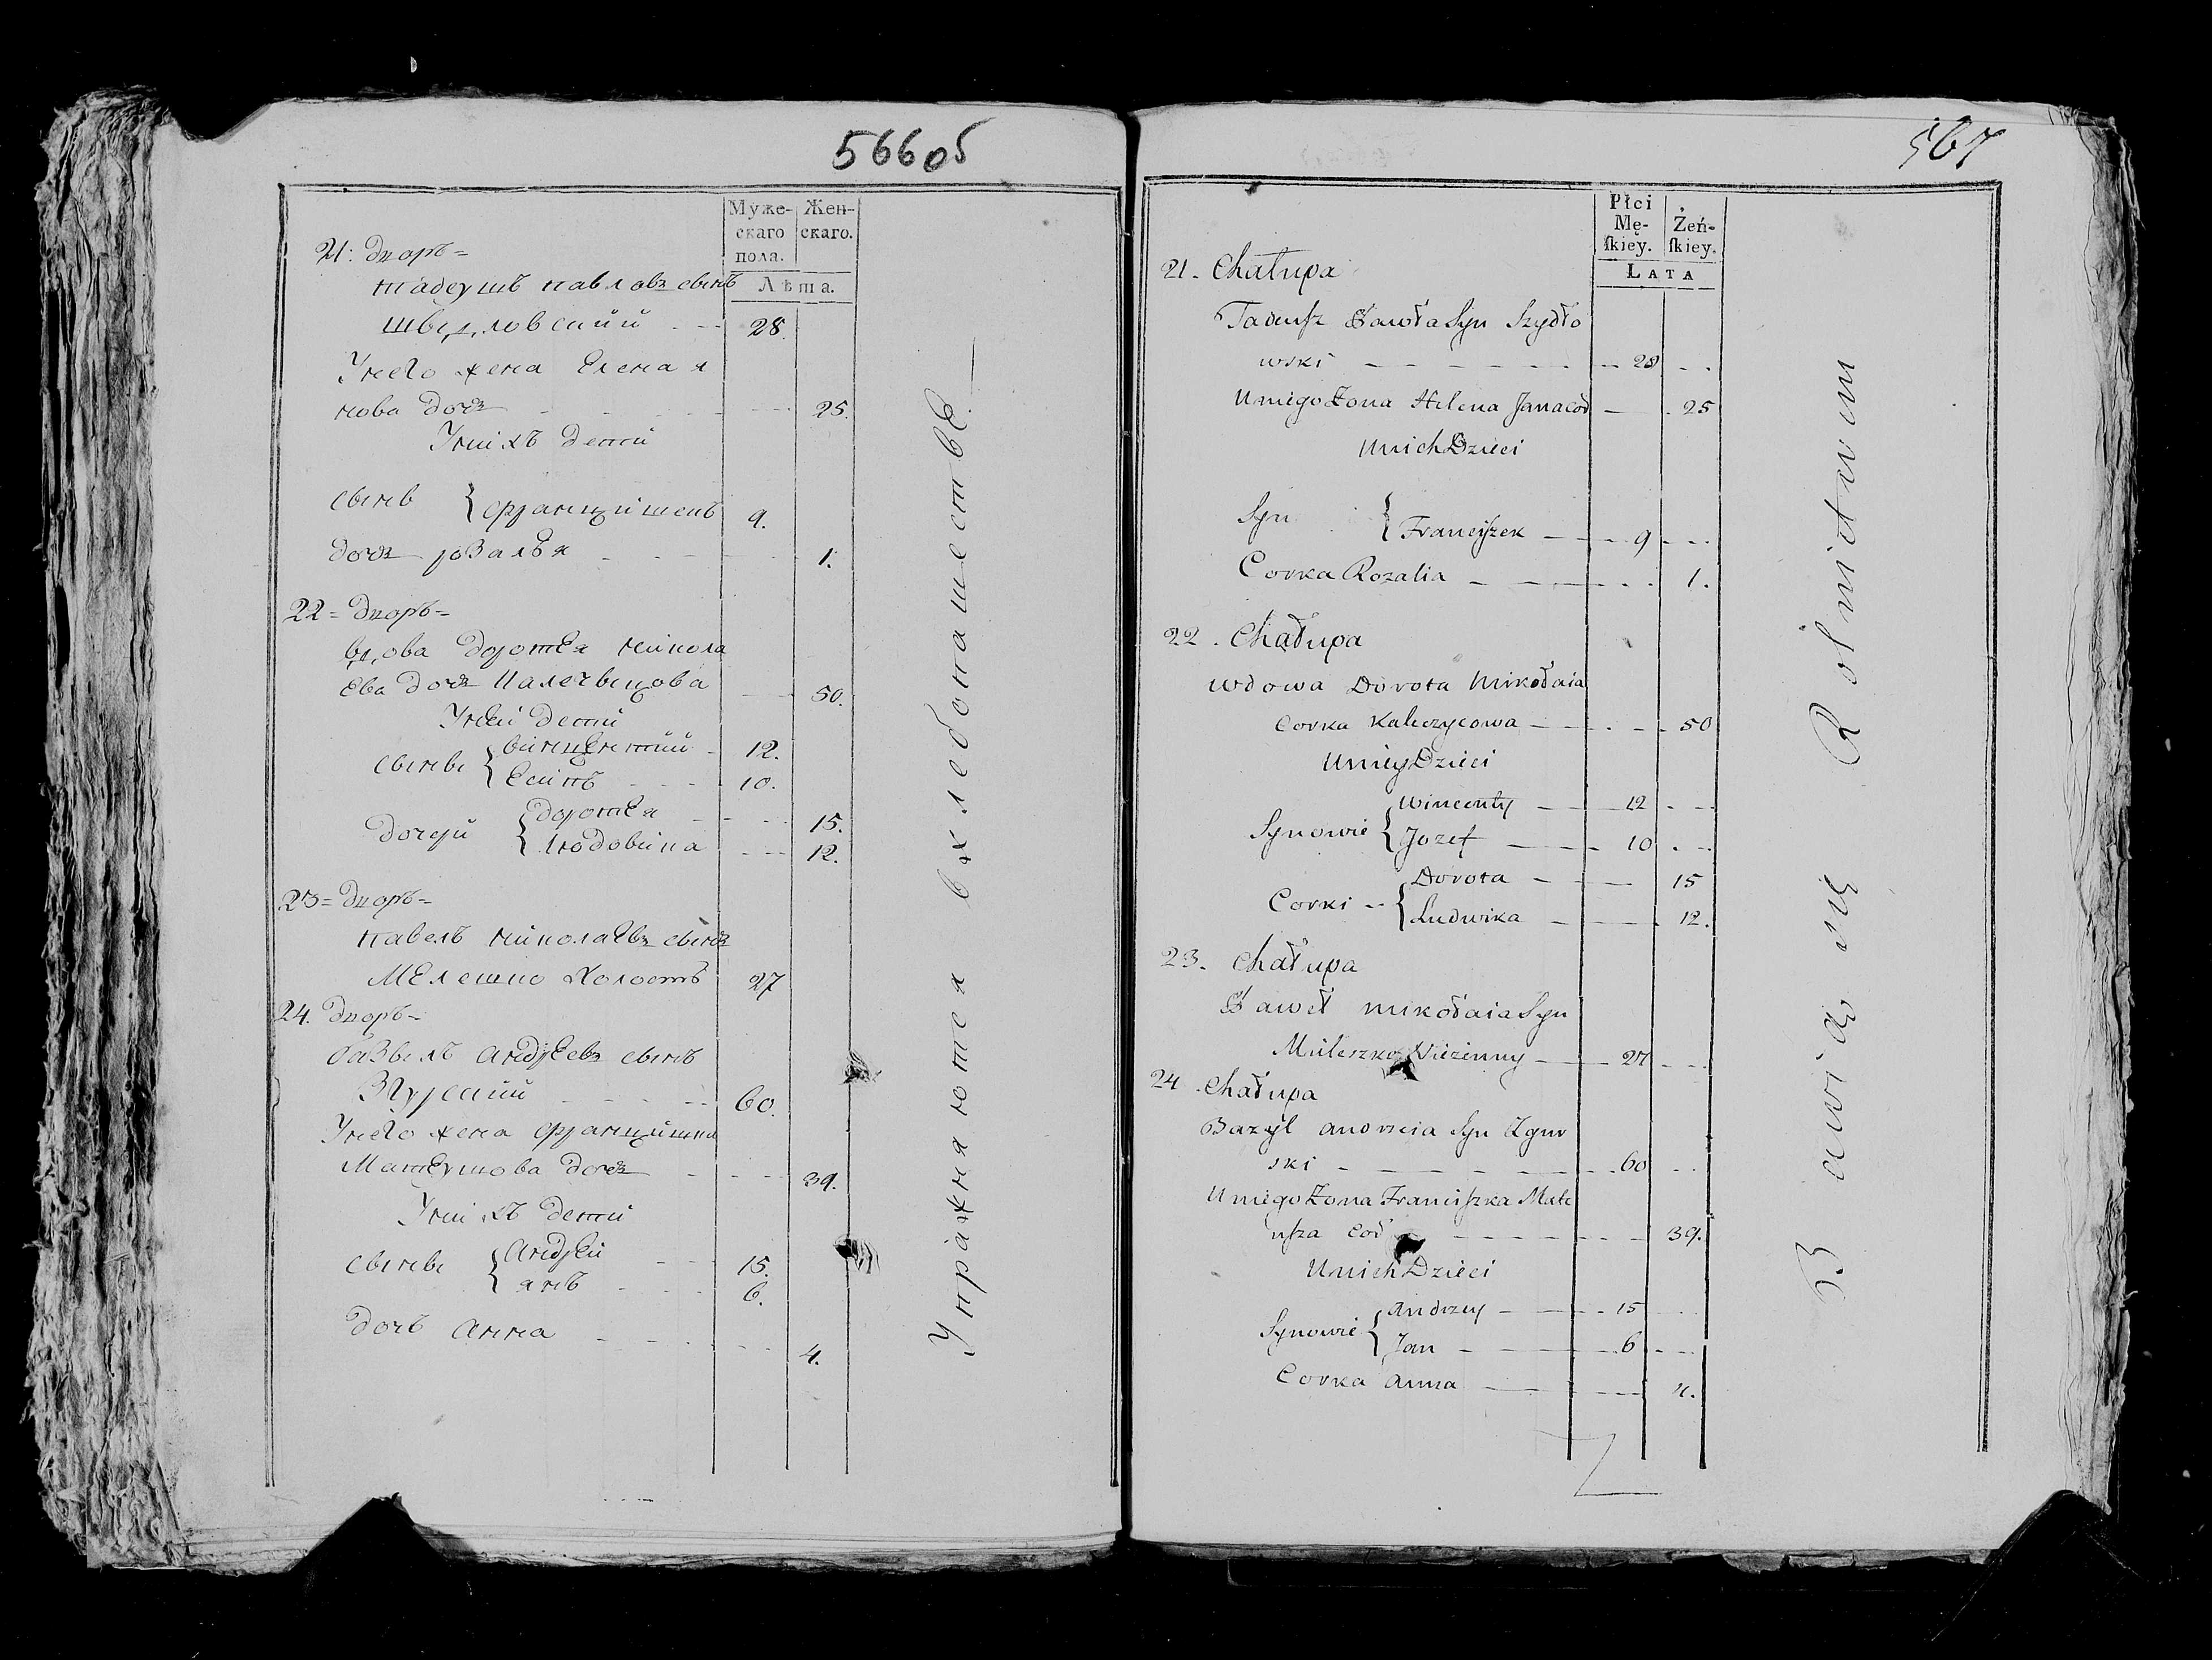 566об
Муже-
скаго
пола.
Жен-
скаго.
Лѣта.
21: дворъ=
тадеушъ павловъ сынъ
шведловский 28.
Унего жена Елена я
нова дочь 25.
Унихъ дети
сынъ { францишекъ 9.
дочь розалья 1.
22= дворъ=
вдова доротея никола
ева дочь Калечвицова 50.
Уней дети
сынве { винцентий 12.
Есипъ 10.
дочери { доротея 15.
людовика 12.
23= дворъ=
павелъ николаевъ сынъ
Мелешко холостъ 27
24. дворъ=
базыль андреевъ сынъ
Згурский 60.
Унего жена францишка
Матеушова дочь 39.
Унихъ дети
сынве { андрей 15.
янъ 6.
дочь анна 4.
Упражняются в хлебопашестве.—
567
Płci
Mę-
ſkiey.
Żeń-
ſkiey.
LATA
21. Chałupa
Tadeusz Pawła Syn Szydło
wski 28
Uniego Żona Helena Jana cod 25
Unich Dzieci
Syn { Franciszek 9
Corka Rozalia 1.
22. Chałupa
Wdowa Dorota Mikołaia
Corka Kaleczycowa 50
Uniey Dzieci
Synowie { Wincenty 12
Jozef 10
Corki { Dorota 15
Ludwika 12.
23. Chałupa
Paweł Mikołaia Syn
Mieleszko Nieżenny 27
24. Chałupa
Bazyl Andrzeia Syn Zgur
ski 60
Uniego Żona Franciszka Mate
usza Cod 39.
Unich Dzieci
Synowie { Andrzey 15
Jan 6
Corka Anna 4.
Bawią się Rolnictwem